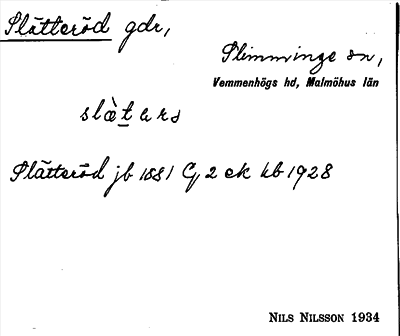 Slätteröd gdr,
Slimminge sn,
Vemmenhögs hd, Malmöhus län
slätarö
Slätteröd jb 1881 G, 2 ek kb 1928
NILS NILSSON 1934